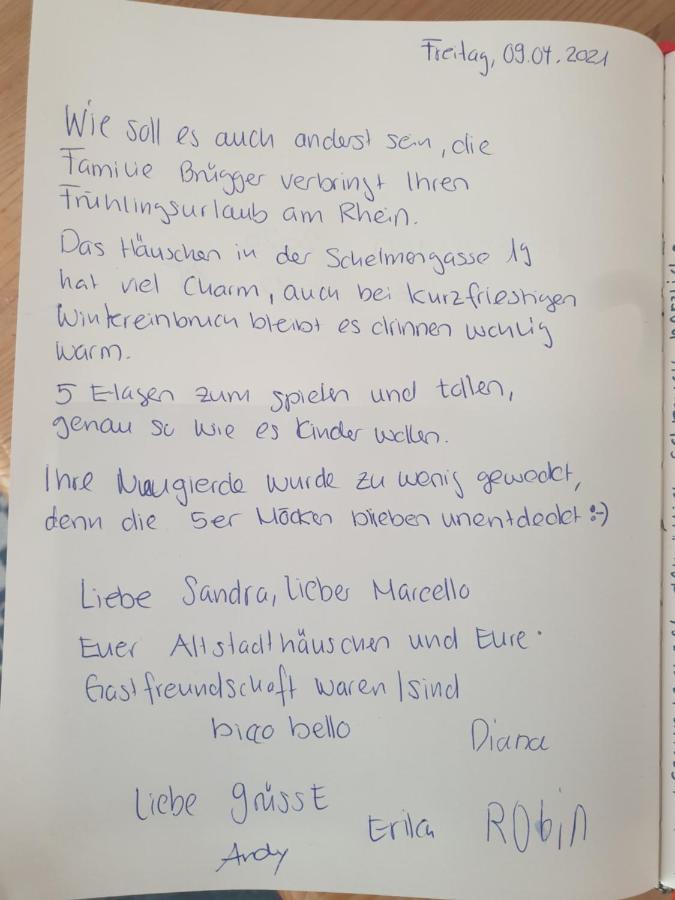 Freitag, 09.04.2021
Wie soll es auch anderst sein, die
Familie Brügger verbringt Ihren
Frühlingsurlaub am Rhein.
Das Häuschen in der Schelmengasse 19
hat viel Charm, auch bei kurzfriestigen
Wintereinbruch bleibt es drinnen wohlig
warm.
5 Etagen zum spielen und tollen,
genau so wie es Kinder wollen.
Ihre Neugierde wurde zu wenig geweckt,
denn die 5er Möcken blieben unentdeckt :-)
Liebe Sandra, lieber Marcello
Euer Altstadthäuschen und Eure
Gastfreundschaft waren/sind
bicco bello
Diana
Liebe grüsse
Erika RObin
Andy